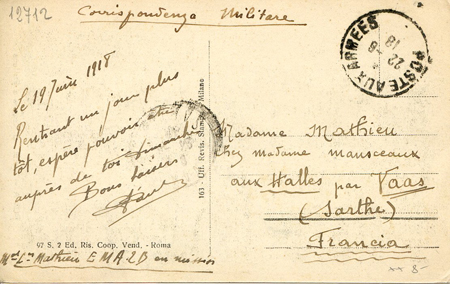 12712
Correspondenza Militare
POSTE AUX ARMEES
22 - 8
18
Le 19 Juin 1918
Rentrant un jour plus
tôt, espère pouvoir être
auprès de toi Dimanche
Bons baisers
Madame Mathieu
chez madame manseaux
aux Halles par Vaas
(Sarthe)
Francia
163 - Uff. Revis. Stampa Milano
97 S. 2 Ed. Ris. Coop. Vend. - Roma
Mathieu E M A 2 B en mission
×× 8-